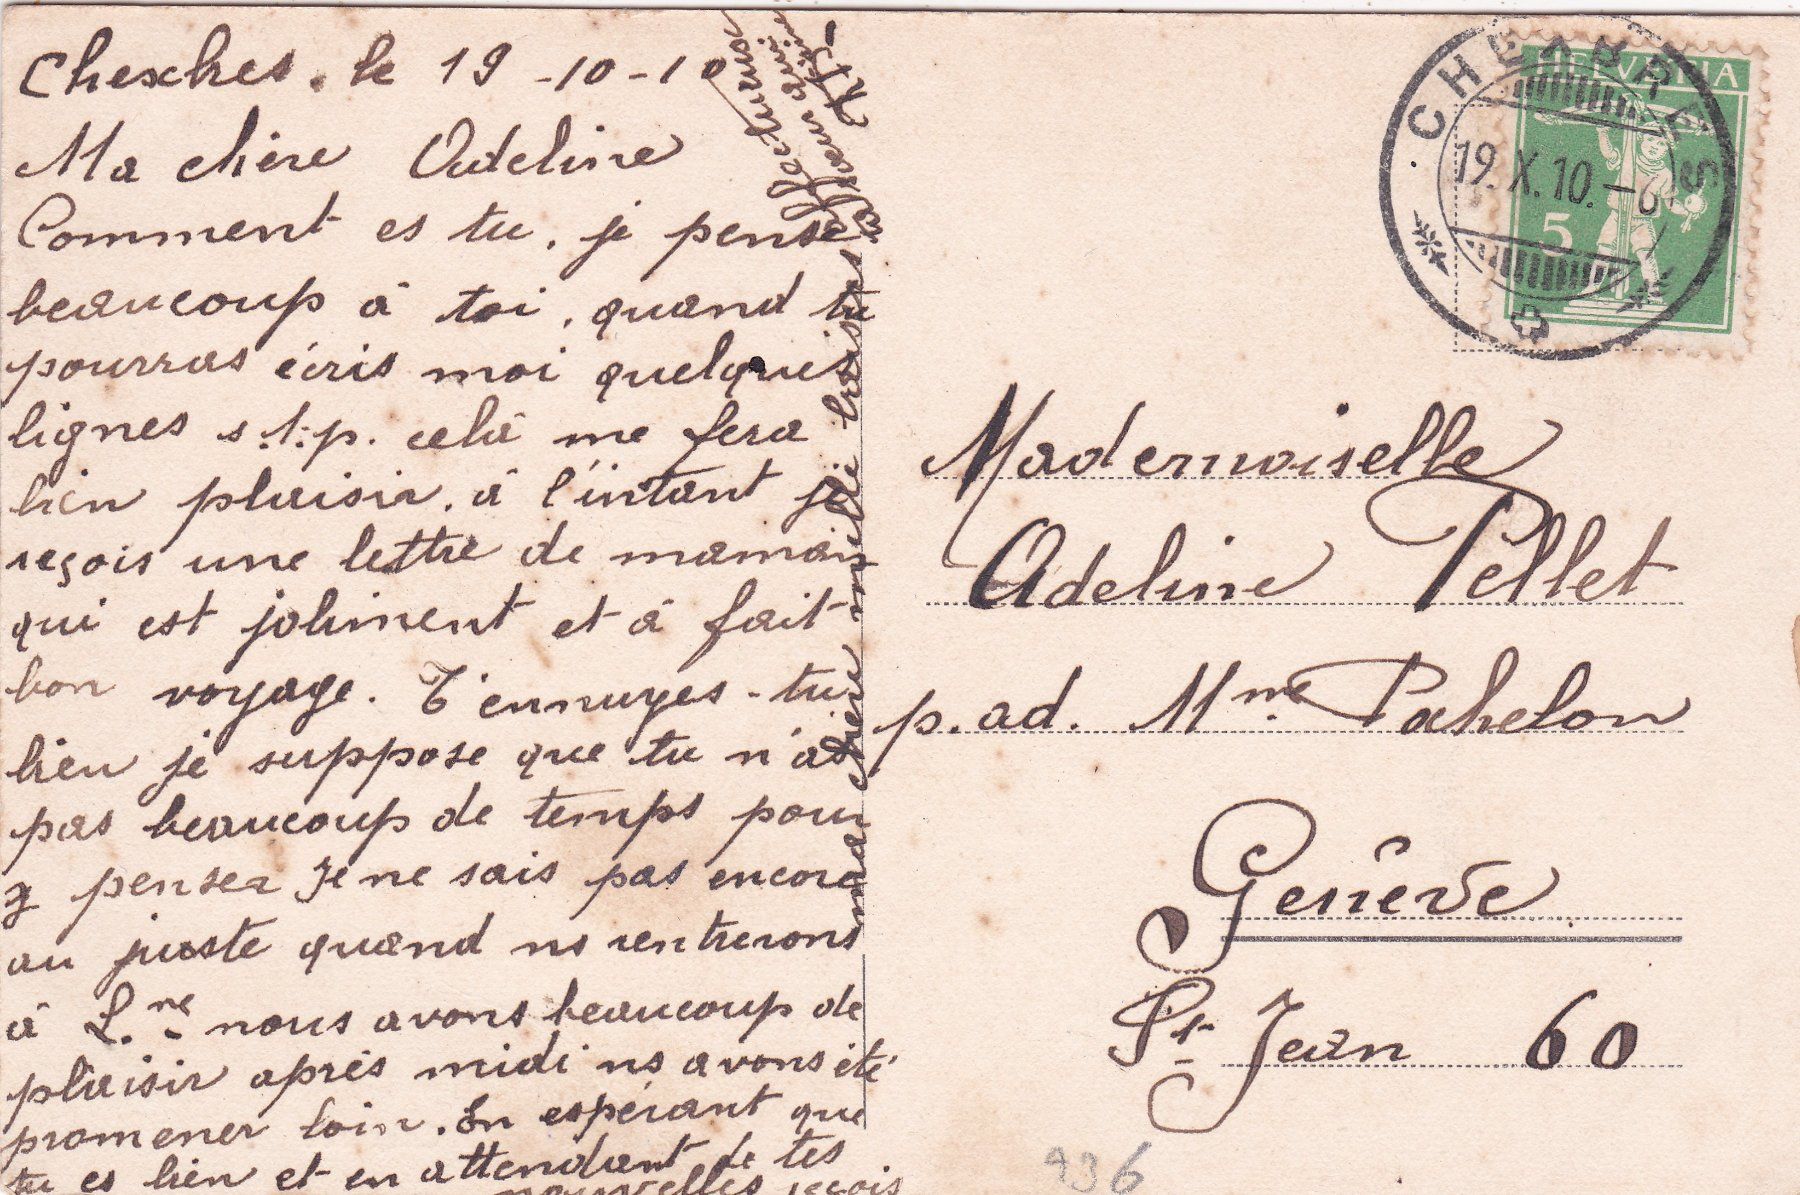 Chexbres. le 19-10-10
Ma chère Adeline
Comment es tu, je pense
beaucoup à toi, quand tu
pourras écris moi quelques
lignes s.t.p. celà me fera
bien plaisir. à l'intant je
reçois une lettre de maman
qui est joliment et à fait
bon voyage. T'ennuyes-tu
bien je suppose que tu n'as
pas beaucoup de temps pour
y penser Je ne sais pas encore
au juste quand ns rentrerons
à L.ne nous avons beaucoup de
plaisir après midi ns avons été
promener loin. En espérant que
tu es bien et en attendant de tes
nouvelles reçois
ma chère mille bais
affectueuse
ta sœur
HELVETIA
5
CHEXBRES
19.X.10.-6
Mademoiselle
Adeline Pellet
p. ad. Mme Pahelon
Genève
St Jean 60
936